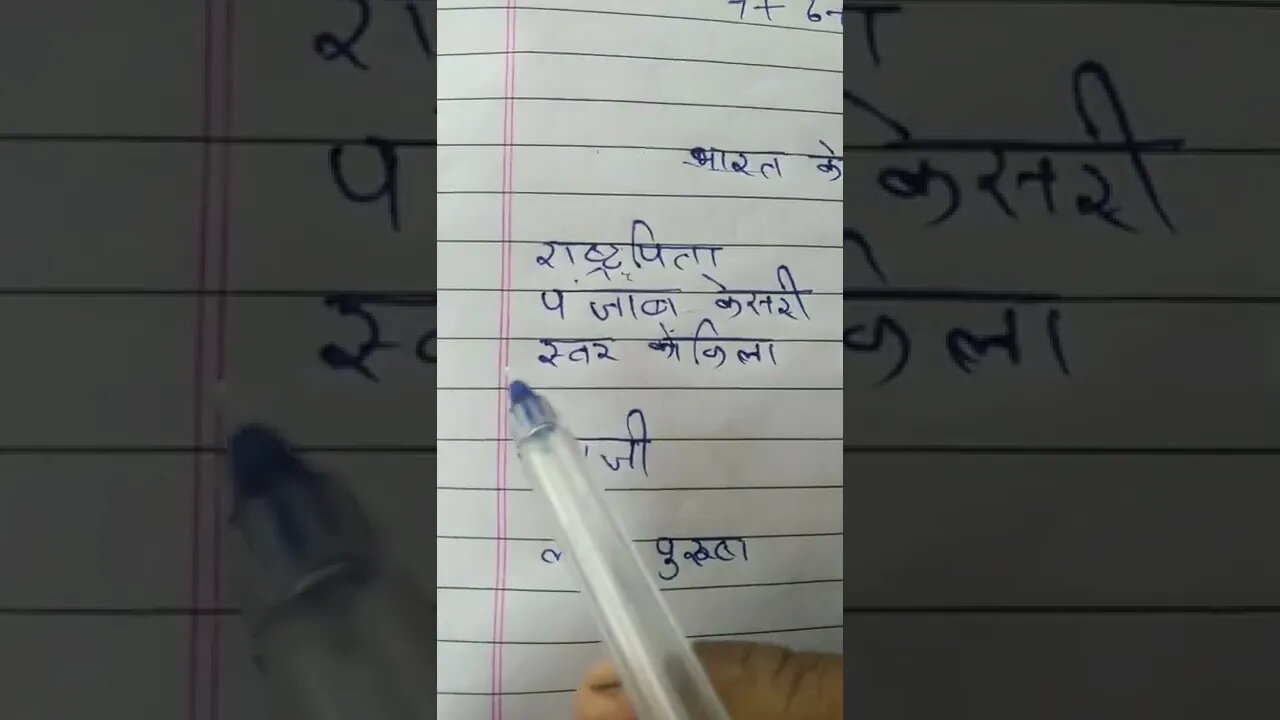 भारत के
राष्ट्रपिता
पंजाब केसरी
स्वर कोकिला
जी
पुरूष